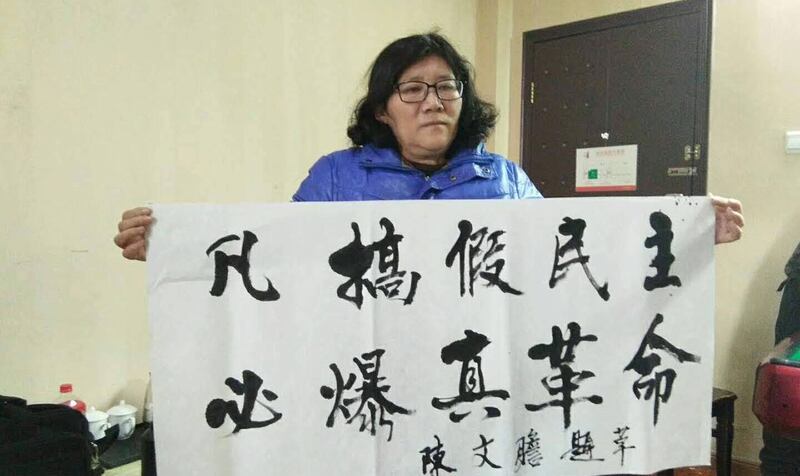 凡搞假民主
必爆真革命
陳文膽題